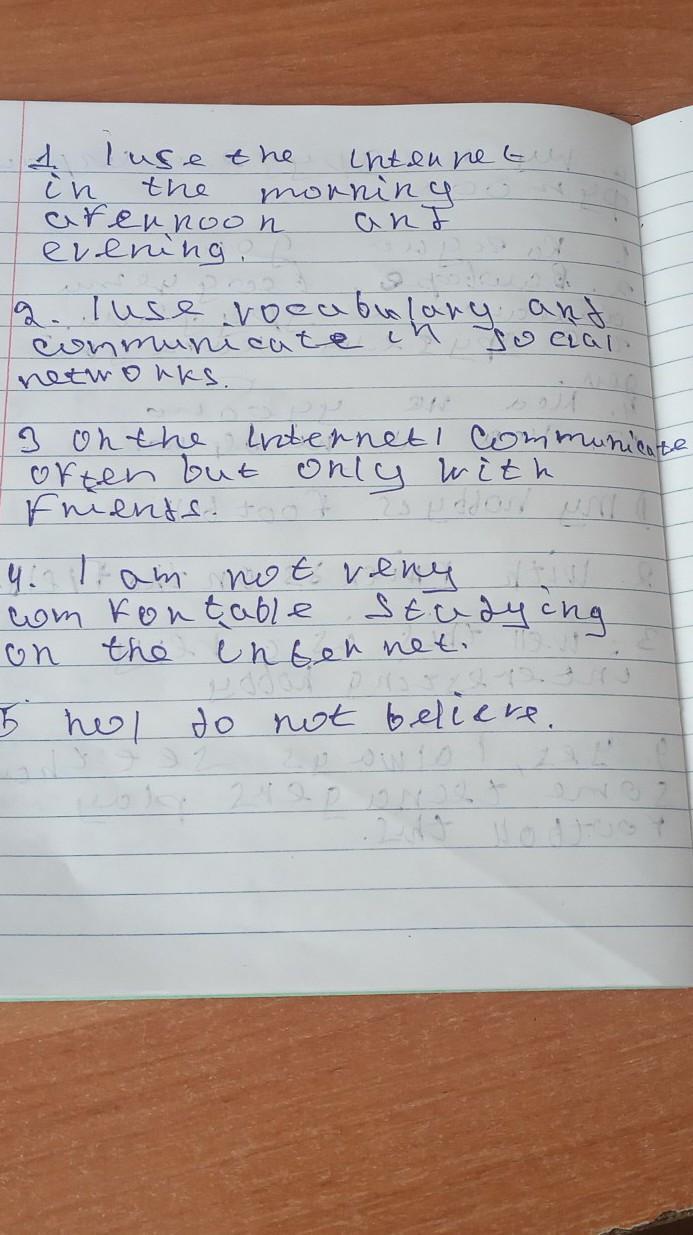 1. I use the internet
in the morning
afernoon and
evening.
2. I use vocabulary and
communicate in social
networks.
3 On the internet I communicate
often but only with
friends.
4. I am not very
comfortable studying
on the internet.
5 no I do not believe.